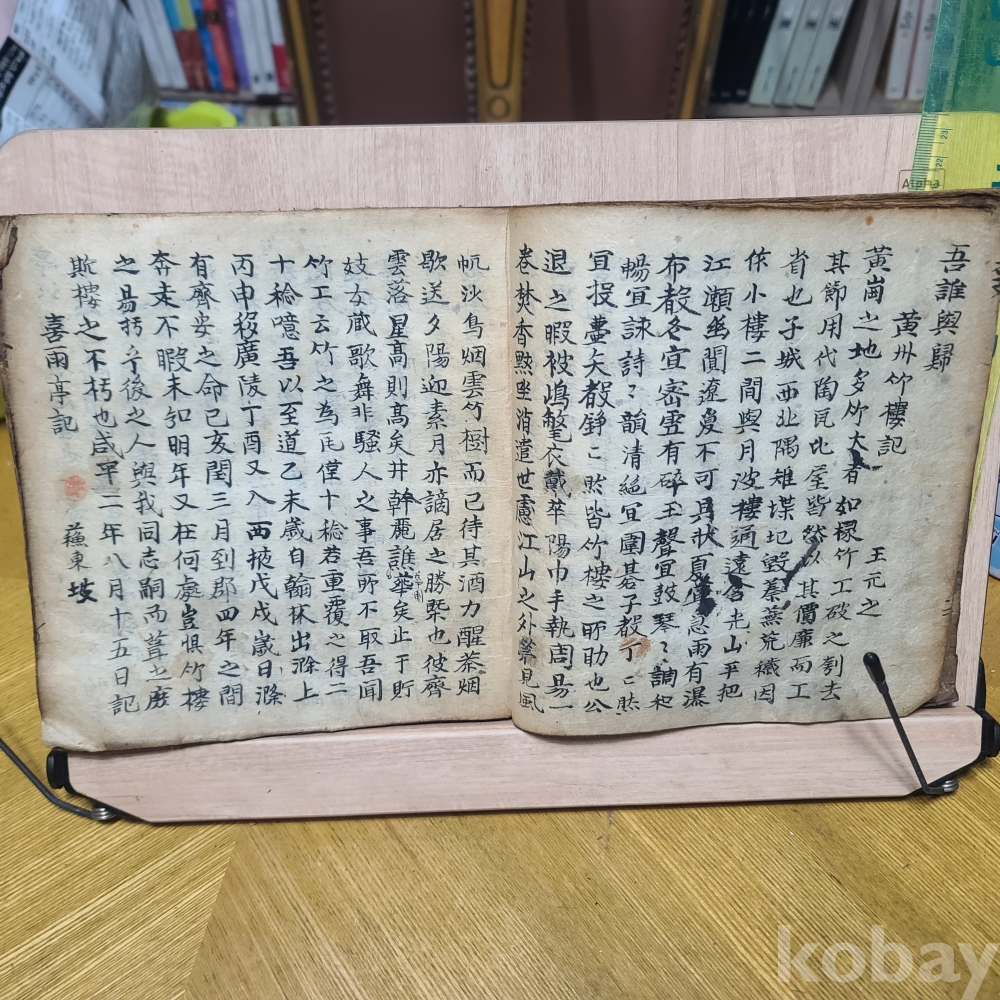 吾誰與歸
黃州竹樓記 王元之
黃崗之地多竹大者如椽竹工破之刳去
其節用代陶瓦比屋皆然以其價廉而工
省也子城西北隅雉堞圮毀蓁蕪荒穢因
作小樓二間與月波樓通遠吞光山平挹
江瀨幽閴遼敻不可具狀夏宜急雨有瀑
布聲冬宜密雪有碎玉聲宜鼓琴〻調和
暢宜詠詩〻韻清絕宜圍碁子聲丁〻然
宜投壺矢聲錚〻然皆竹樓之所助也公
退之暇被鶴氅衣戴華陽巾手執周易一
卷焚香黙坐消遣世慮江山之外第見風
帆沙鳥烟雲竹樹而已待其酒力醒茶烟
歇送夕陽迎素月亦謫居之勝槩也彼齊
雲落星高則高矣井幹麗譙華矣止于貯
妓女藏歌舞非騷人之事吾所不取吾聞
竹工云竹之為瓦僅十稔若重覆之得二
十稔噫吾以至道乙未歲自翰林出滁上
丙申移廣陵丁酉又入西掖戊戌歲日滁
有齊安之命己亥閏三月到郡四年之間
奔走不暇未知明年又在何處豈惧竹樓
之易朽乎後之人與我同志嗣而葺之庶
斯樓之不朽也咸平二年八月十五日記
喜雨亭記 蘇東坡
kobay
23
22
Alpha